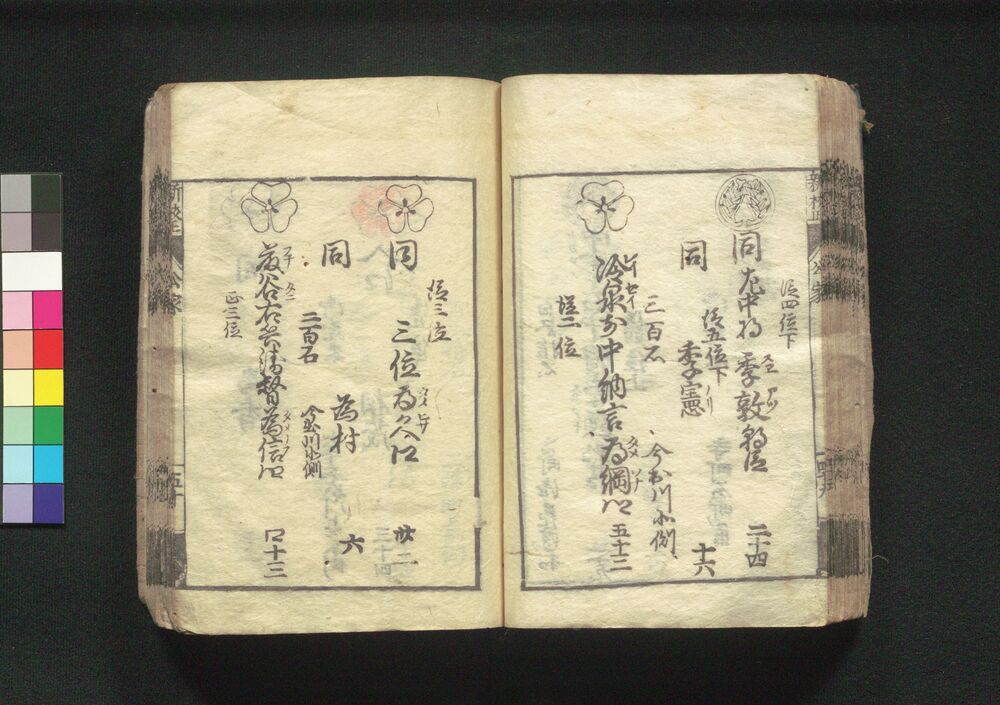 従四位下
同 左中将 季敦朝臣 二十四
従五位下
同 季憲 十六
三百石 今出川北側
冷泉前中納言為綱卿 五十二
レイセイ
従二位
従三位
同 三位為久卿 卅二
同 為村 六
二百石 今出川北側
藤谷右兵衛督為信卿 四十三
正三位
新校正 公家
五十